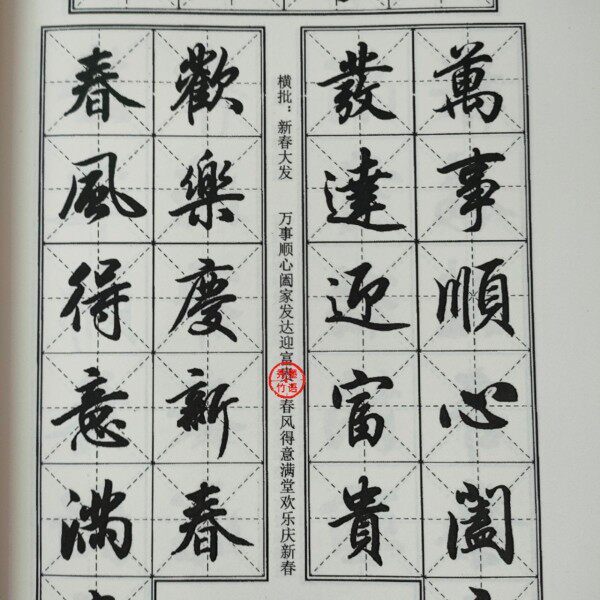 萬事順心闔
發達迎富貴
横批：新春大发
万事顺心阖家发达迎富贵
春风得意满堂欢乐庆新春
春風得意滿
歡樂慶新春